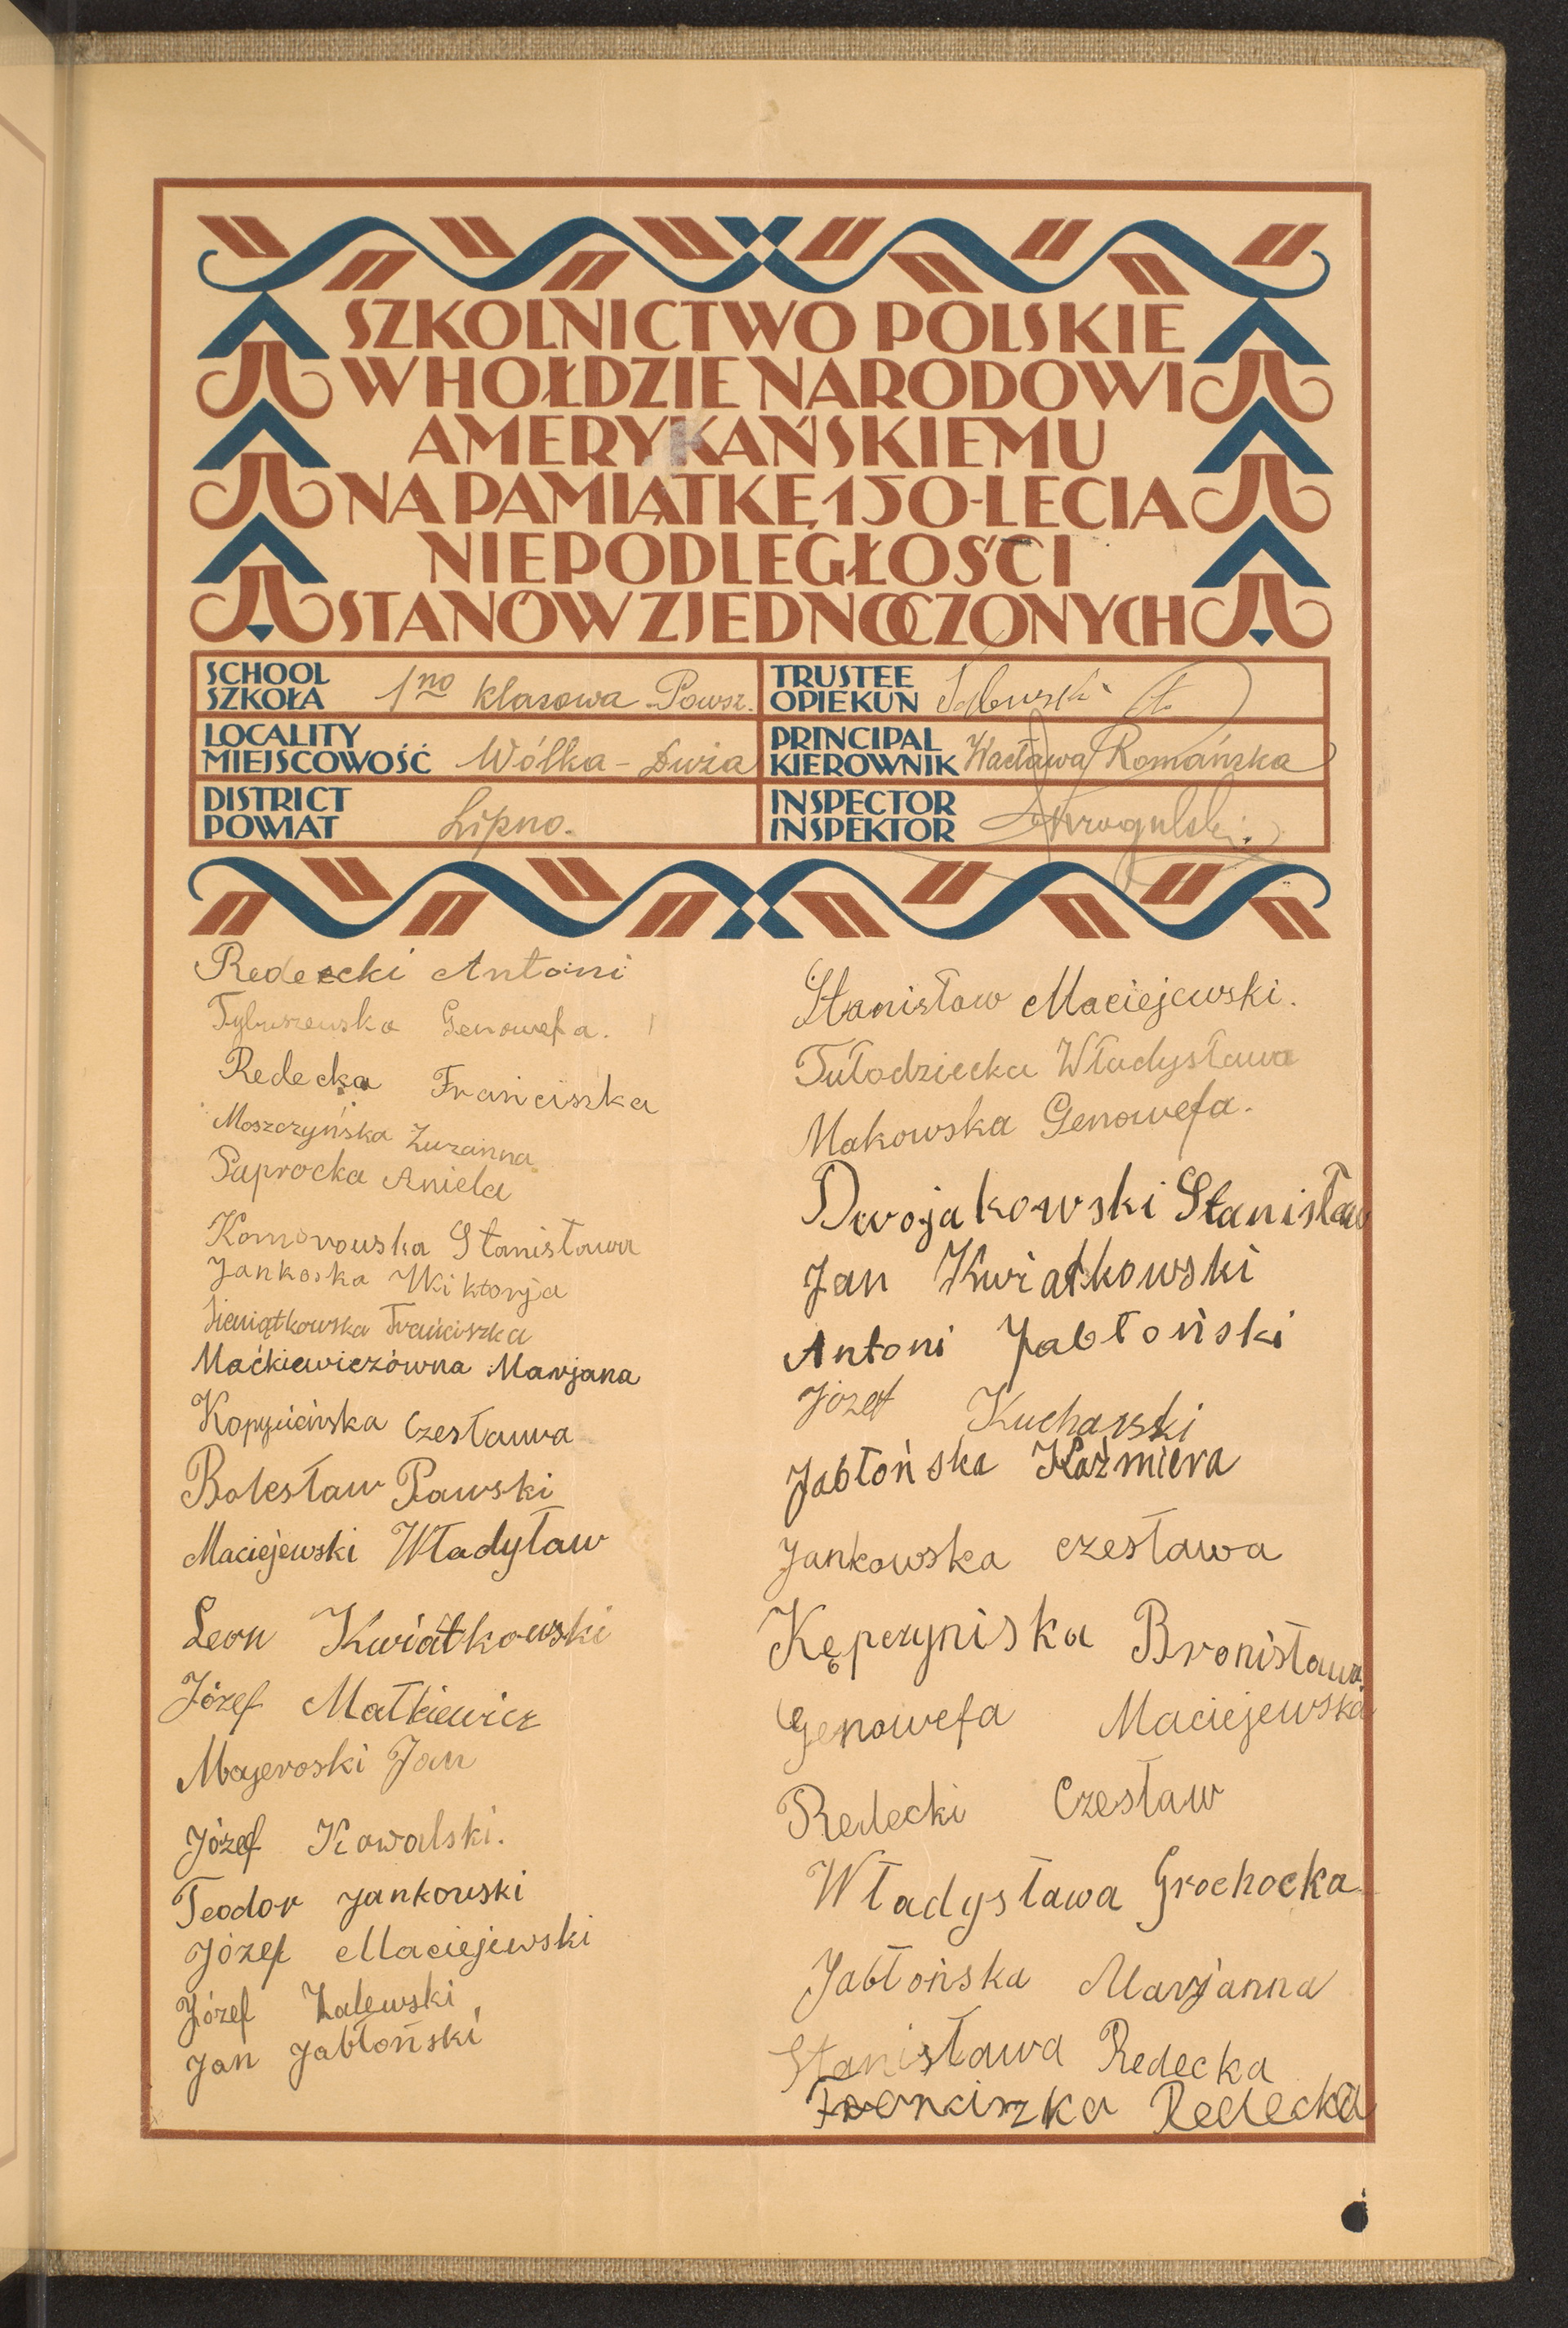 SZKOLNICTWO POLSKIE
W HOŁDZIE NARODOWI
AMERYKAŃSKIEMU
NA PAMIĄTKĘ 150-LECIA
NIEPODLEGŁOŚCI
STANÓW ZJEDNOCZONYCH
SCHOOL
SZKOŁA 1no klasowa Powsz.
TRUSTEE
OPIEKUN
LOCALITY
MIEJSCOWOŚĆ Wólka - Duża
PRINCIPAL
KIEROWNIK Wacława Romańska
DISTRICT
POWIAT Lipno.
INSPECTOR
INSPEKTOR
Redecki Antoni
Tyburzewska Genowefa.
Redecka Franciszka
Moszczyńska Zuzanna
Paprocka Aniela
Komorowska Stanisława
Jankoska Wiktorja
Franciszka
Maćkiewiczówna Marjana
Czesława
Bolesław Pawski
Maciejewski Władyław
Leon Kwiatkowski
Józef Małkiewicz
Majeroski Jan
Józef Kowalski.
Teodor Jankowski
Józef Maciejewski
Józef Zalewski
Jan Jabłoński
Stanisław Maciejewski.
Tułodziecka Władysława
Makowska Genowefa.
Dwojakowski Stanisław
Jan Kwiatkowski
Antoni Jabłoński
Józef Kucharski
Jabłońska Kaźmiera
Jankowska czesława
Kępczyniska Bronisława
Genowefa Maciejewska
Redecki Czesław
Władysława Grochocka
Jabłońska Marjanna
Stanisława Redecka
Franciszka Redecka